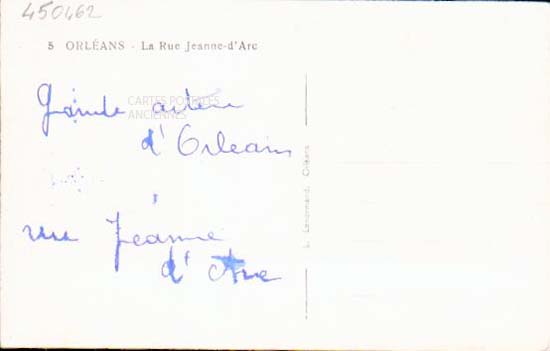 450462
5 ORLÉANS - La Rue Jeanne-d'Arc
CARTES POSTALES
ANCIENNES
Grande
d'Orleans
rue Jeanne
d'Arc
Orléans